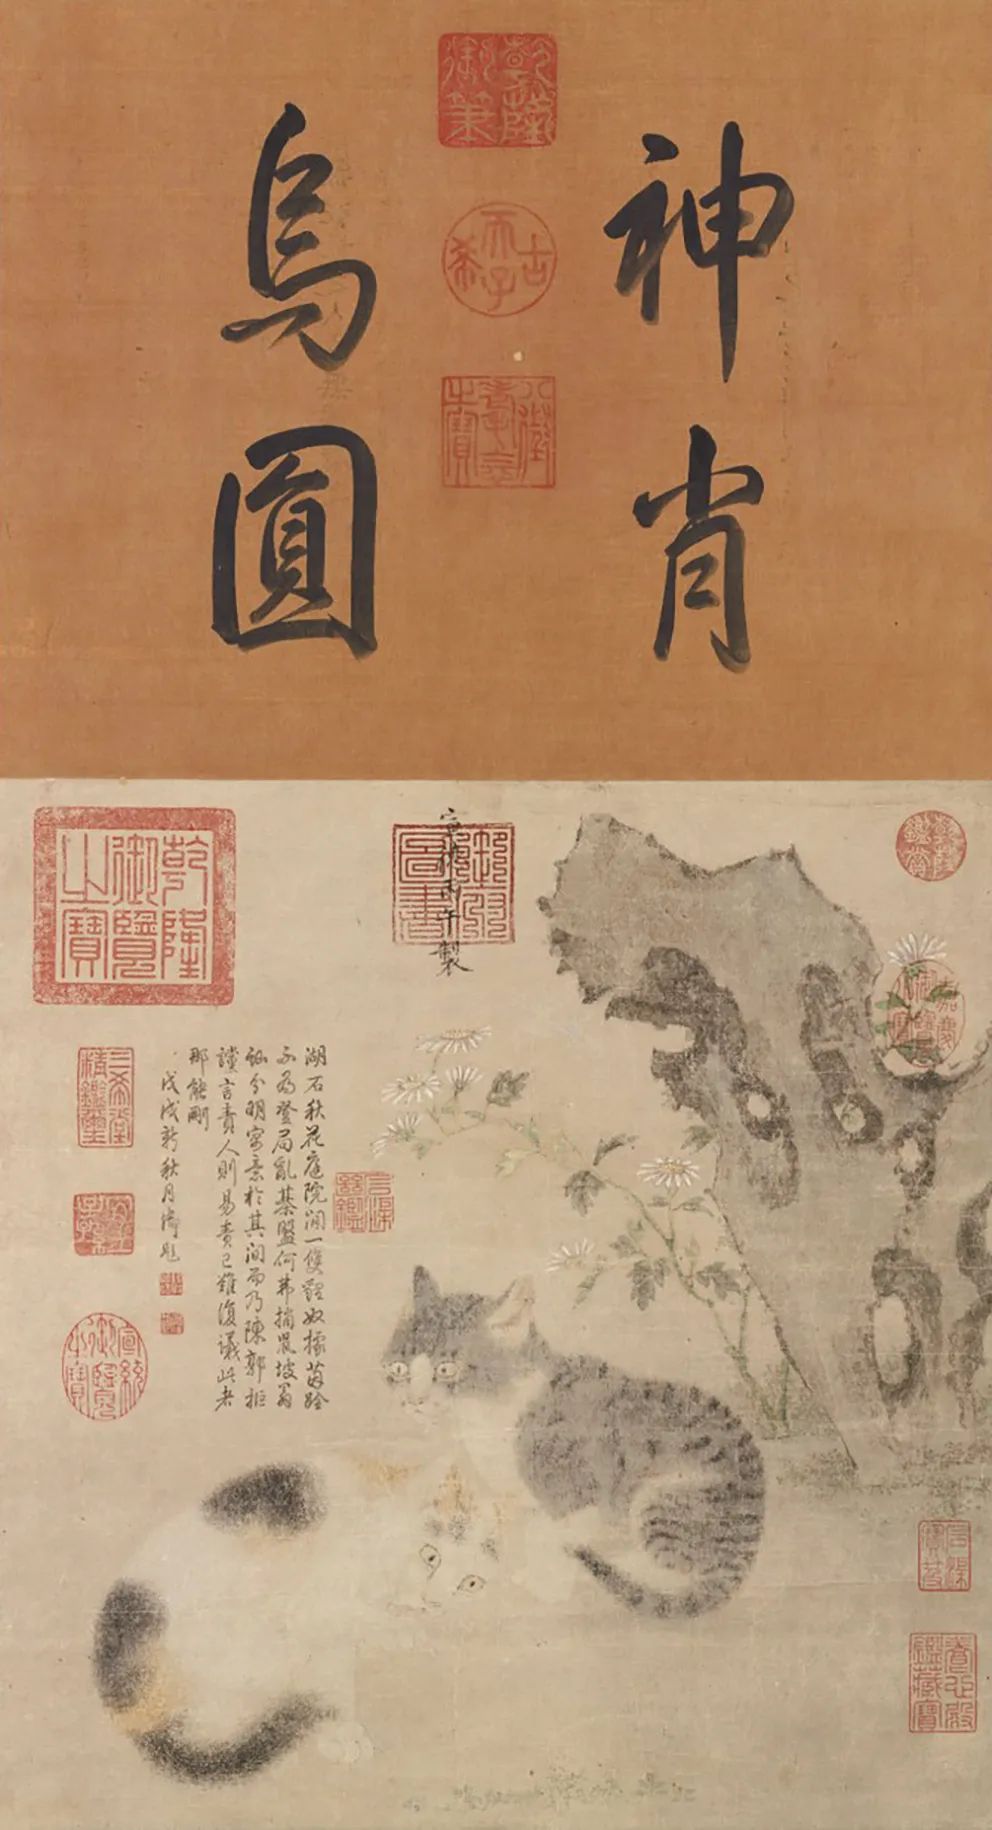 神肖
烏圓
乾隆御筆
古希天子
八徵耄念之寶
乾隆鑑賞
嘉慶御覽之寶
宣德丙午製
御府圖書
乾隆御覽之寶
湖石秋花庭院閒一雙貍奴據茵跧
不為登局亂棊盤何弗捕鼠坡翁
訕分明寓意於其間而乃陳郭拒
讜言責人則易責己難復議此者
那能刪
戊戌新秋月御題
石渠繼鑑
三希堂精鑑璽
宜子孫
宣統御覽之寶
石渠寶笈
養心殿鑑藏寶